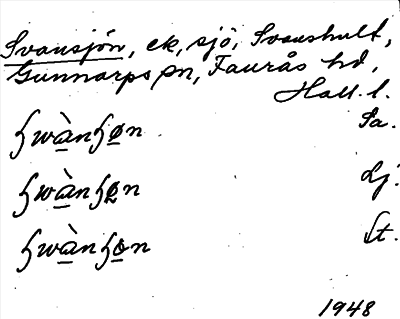 Svansjön, ek, sjö, Svenshult,
Gunnarps sn, Faurås hd,
Hall. l.
ʃwànʃøn Sa.
ʃwànʃøn Lj.
ʃwànʃøn St.
1948